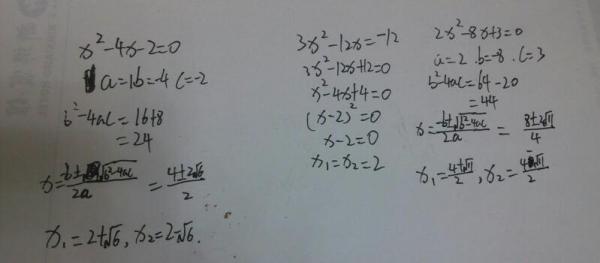 x²-4x-2=0
a=1 b=-4 c=-2
b²-4ac=16+8
=24
x=\frac{-b±\sqrt{b²-4ac}}{2a}=\frac{4±2√6}{2}
x₁=2+√6, x₂=2-√6.
3x²-12x=-12
3x²-12x+12=0
x²-4x+4=0
(x-2)²=0
x-2=0
x₁=x₂=2
2x²-8x+3=0
a=2 . b=-8 . c=3
b²-4ac=64-20
=44
x=\frac{-b±\sqrt{b²-4ac}}{2a}=\frac{8±2√11}{4}
x₁=\frac{4+√11}{2}, x₂=\frac{4-√11}{2}